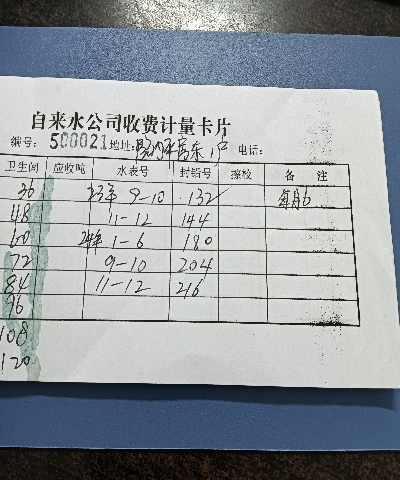 自来水公司收费计量卡片
编号: 500021 地址: 东1户 电话:
卫生间 应收吨 水表号 封铅号 擦校 备 注
36 23年 9-10 132 每月6
48 11-12 144
60 24年 1-6 180
72 9-10 204
84 11-12 216
96
108
120